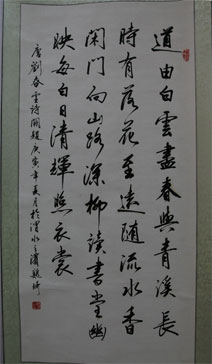 道由白雲盡春與青溪長
時有落花至遠隨流水香
閑門向山路深柳讀書堂幽
映每白日清輝照衣裳
唐劉詩闕題庚寅年夏月於渭水之濱